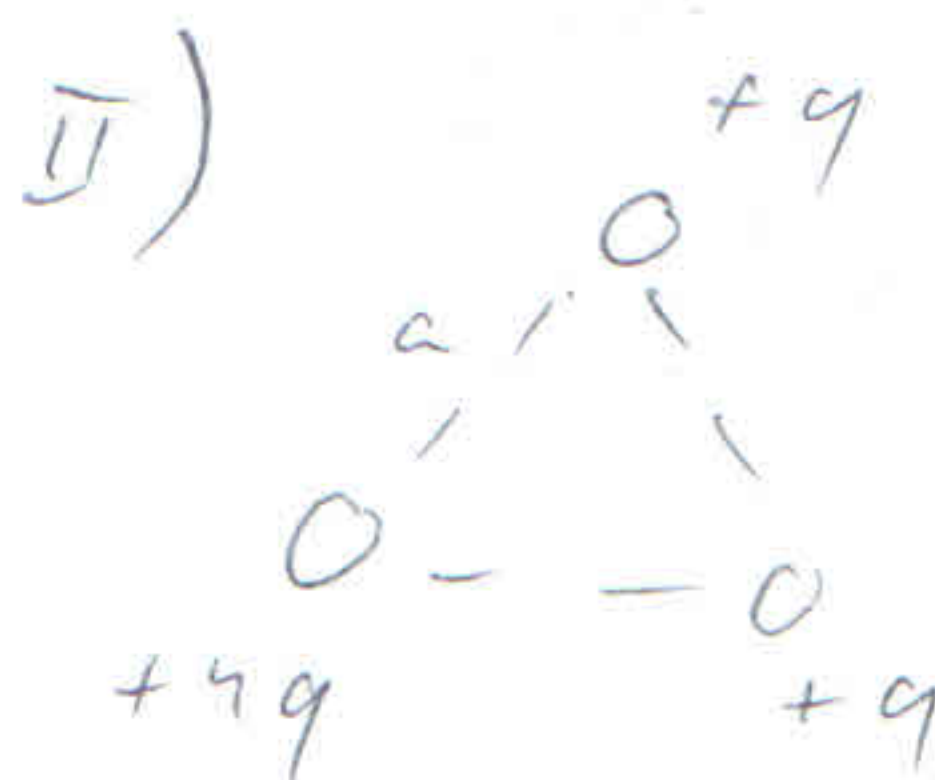 II)
+q
a
+4q
+q